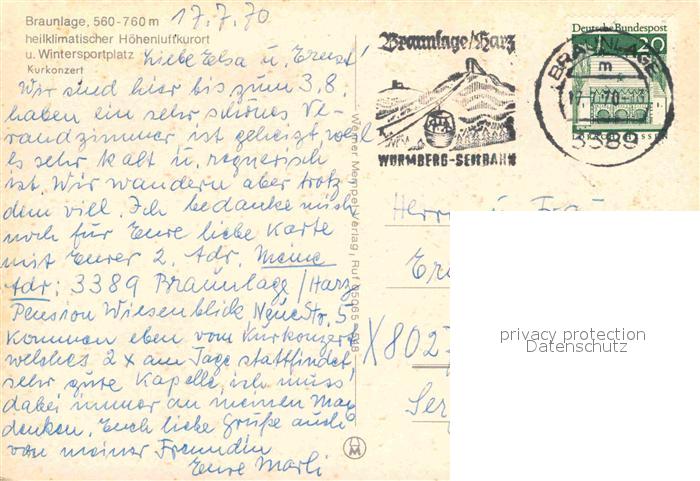 Braunlage, 560-760 m
heilklimatischer Höhenluftkurort
u. Wintersportplatz
Kurkonzert
17.7.70
Liebe Elsa u. Ernst!
Wir sind hier bis zum 3.8.
haben ein sehr schönes Ve-
randzimmer, ist geheizt weil
es sehr kalt u. regnerisch
ist. Wir wandern aber trotz
dem viel. Ich bedanke mich
noch für Eure liebe Karte
mit Eurer 2. Adr. Meine
Adr: 3389 Braunlage/Harz
Pension Wiesenblick Neue Str. 5
Kommen eben vom Kurkonzert
welches 2 x am Tage stattfindet,
sehr gute Kapelle, ich muss
dabei immer an meinen
denken. Euch liebe Grüße auch
von meiner Freundin
Eure Marli
Werner Mempel Verlag, Ruf 05065
Braunlage/Harz
WURMBERG-SEILBAHN
Deutsche Bundespost
20
BRAUNLAGE
m
70
3389
Herrn u. Frau
X 802
privacy protection
Datenschutz